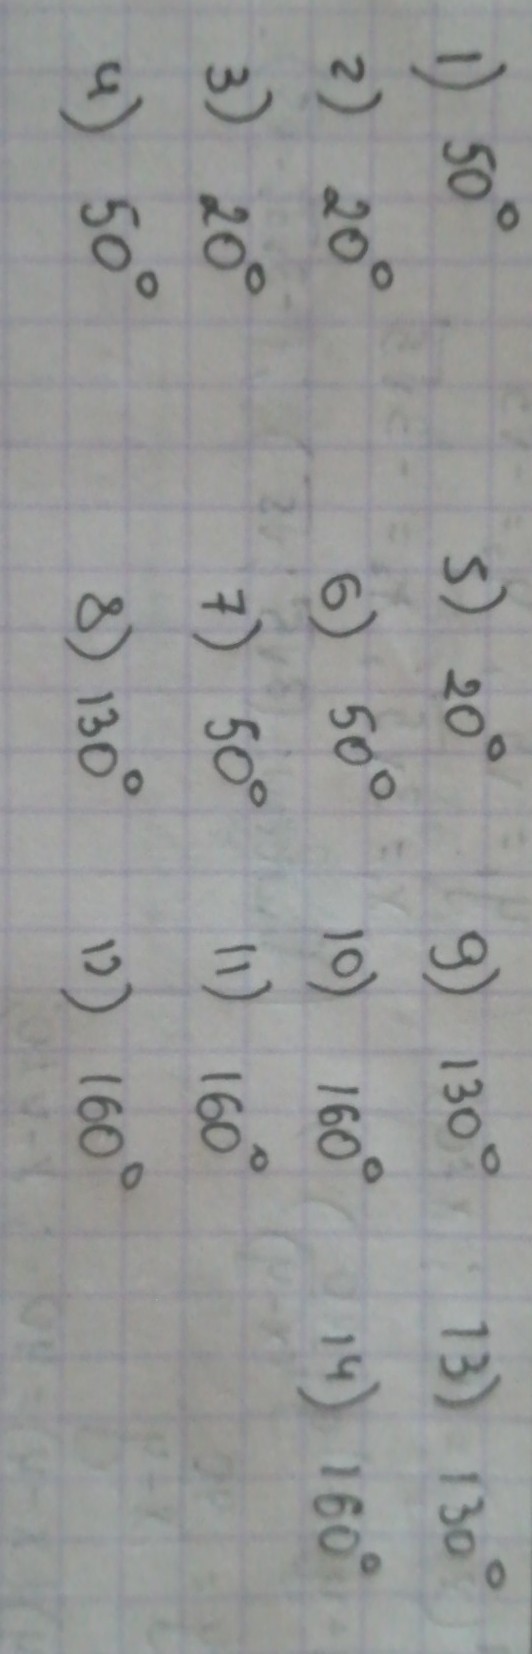 1) 50° 5) 20° 9) 130° 13) 130°
2) 20° 6) 50° 10) 160° 14) 160°
3) 20° 7) 50° 11) 160°
4) 50° 8) 130° 12) 160°